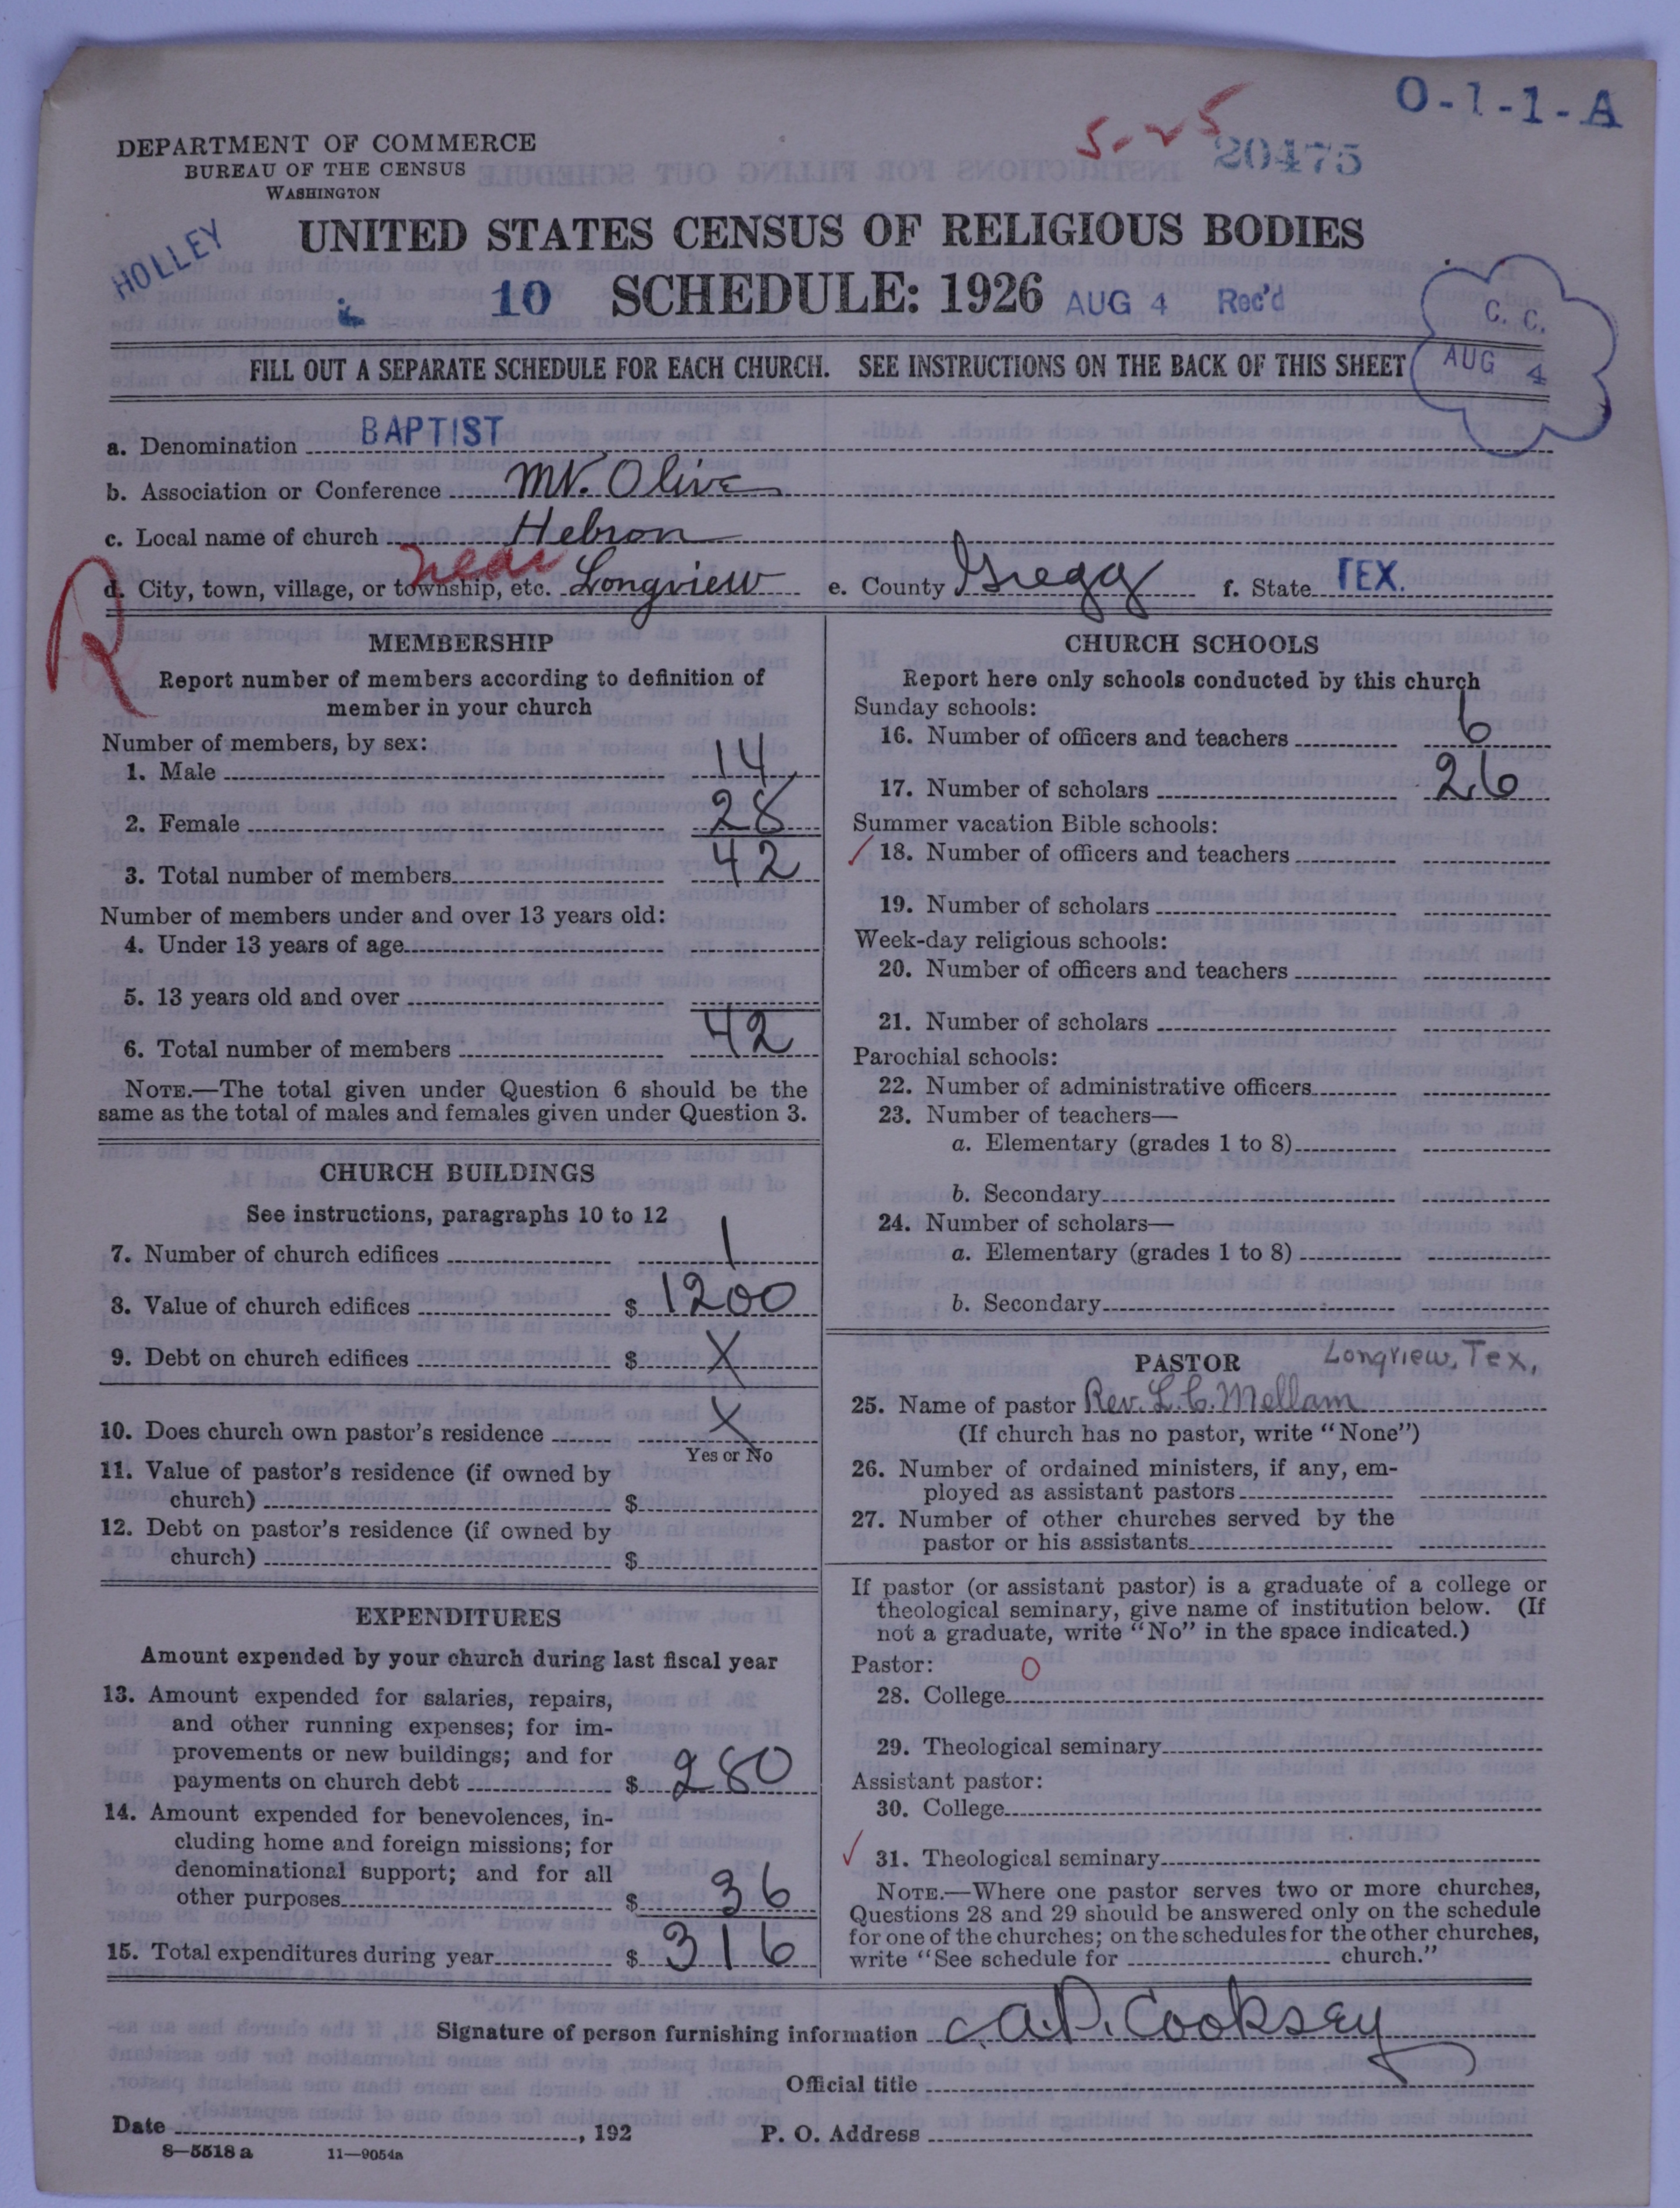 O-1-1-A
5-25
20475
DEPARTMENT OF COMMERCE
BUREAU OF THE CENSUS
WASHINGTON
HOLLEY
UNITED STATES CENSUS OF RELIGIOUS BODIES
10 SCHEDULE: 1926 AUG 4 Rec'd
C. C.
AUG 4
FILL OUT A SEPARATE SCHEDULE FOR EACH CHURCH. SEE INSTRUCTIONS ON THE BACK OF THIS SHEET
a. Denomination BAPTIST
b. Association or Conference Mt. Olive
c. Local name of church Hebron
R
d. City, town, village, or township, etc. near Longview e. County Gregg f. State TEX.
MEMBERSHIP
Report number of members according to definition of
member in your church
Number of members, by sex:
1. Male 14
2. Female 28
3. Total number of members 42
Number of members under and over 13 years old:
4. Under 13 years of age
5. 13 years old and over
6. Total number of members 42
NOTE.—The total given under Question 6 should be the
same as the total of males and females given under Question 3.
CHURCH BUILDINGS
See instructions, paragraphs 10 to 12
7. Number of church edifices 1
8. Value of church edifices $ 1200
9. Debt on church edifices $ X
10. Does church own pastor's residence X
Yes or No
11. Value of pastor's residence (if owned by
church) $
12. Debt on pastor's residence (if owned by
church) $
EXPENDITURES
Amount expended by your church during last fiscal year
13. Amount expended for salaries, repairs,
and other running expenses; for im-
provements or new buildings; and for
payments on church debt $ 280
14. Amount expended for benevolences, in-
cluding home and foreign missions; for
denominational support; and for all
other purposes $ 36
15. Total expenditures during year $ 316
CHURCH SCHOOLS
Report here only schools conducted by this church
Sunday schools:
16. Number of officers and teachers 6
17. Number of scholars 26
Summer vacation Bible schools:
✓ 18. Number of officers and teachers
19. Number of scholars
Week-day religious schools:
20. Number of officers and teachers
21. Number of scholars
Parochial schools:
22. Number of administrative officers
23. Number of teachers—
a. Elementary (grades 1 to 8)
b. Secondary
24. Number of scholars—
a. Elementary (grades 1 to 8)
b. Secondary
PASTOR Longview, Tex.
25. Name of pastor Rev. L. C. Mellam
(If church has no pastor, write "None")
26. Number of ordained ministers, if any, em-
ployed as assistant pastors
27. Number of other churches served by the
pastor or his assistants
If pastor (or assistant pastor) is a graduate of a college or
theological seminary, give name of institution below. (If
not a graduate, write "No" in the space indicated.)
Pastor: 0
28. College
29. Theological seminary
Assistant pastor:
30. College
✓ 31. Theological seminary
NOTE.—Where one pastor serves two or more churches,
Questions 28 and 29 should be answered only on the schedule
for one of the churches; on the schedules for the other churches,
write "See schedule for church."
Signature of person furnishing information A. P. Cooksey
Official title
Date , 192 P. O. Address
8—5518a 11—9054a